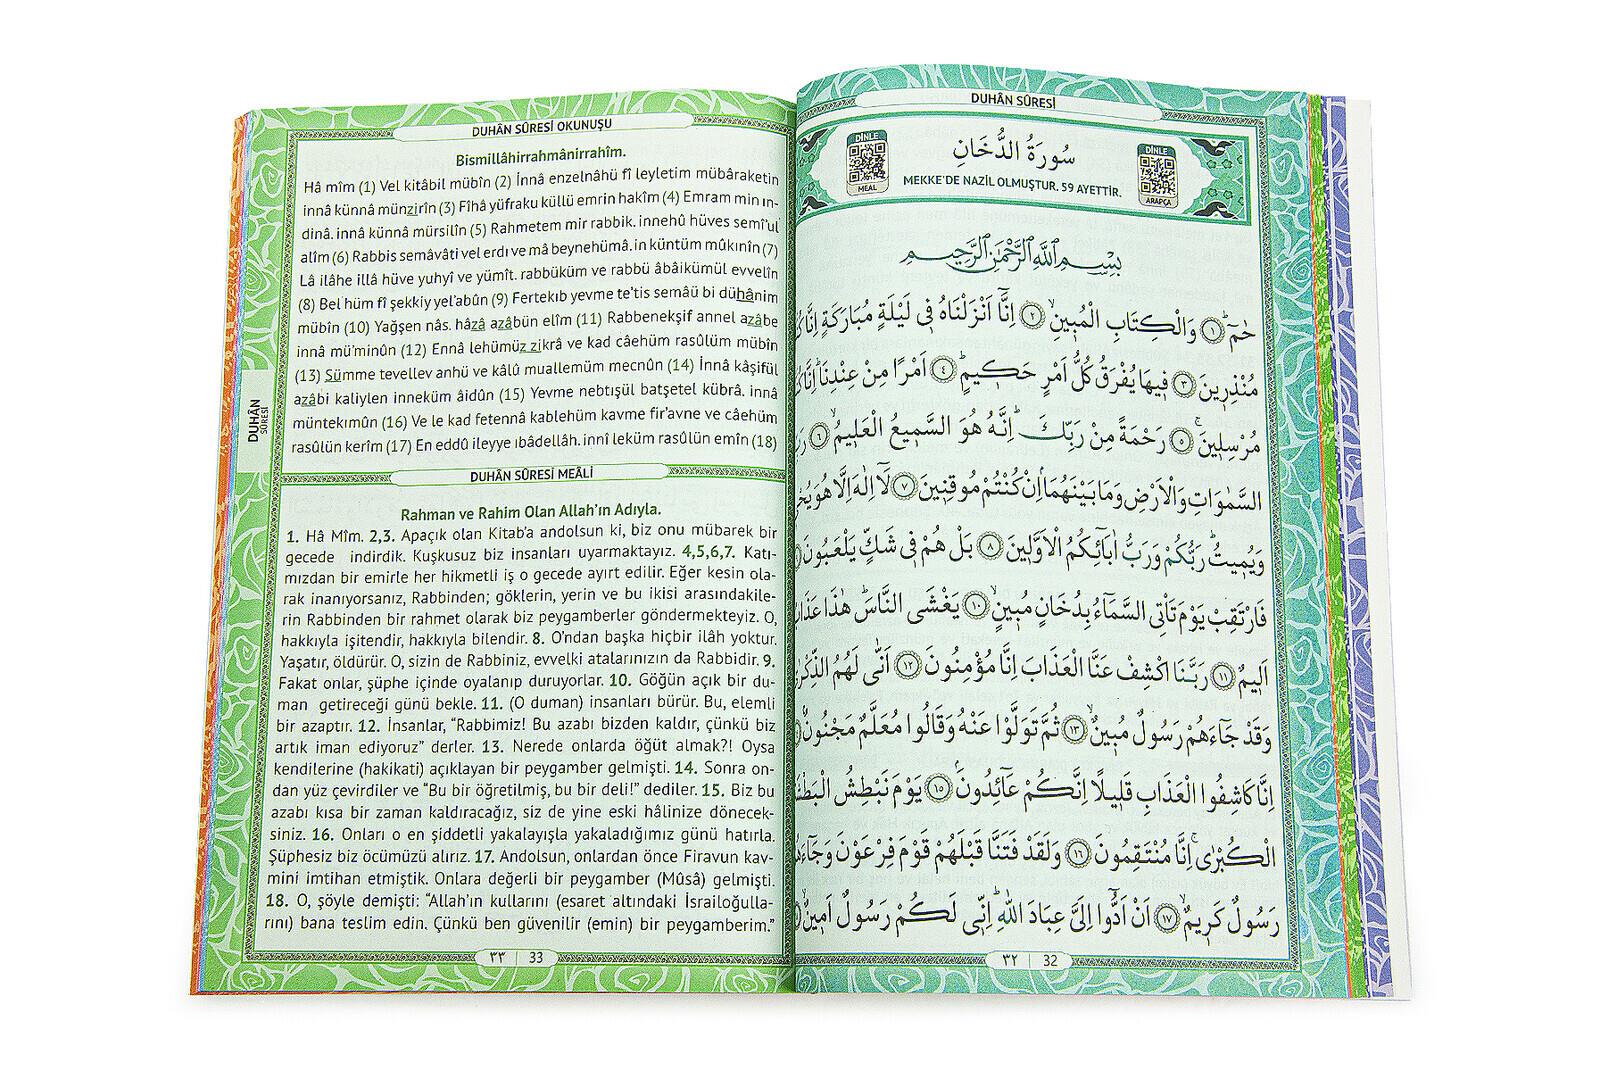 DUHÂN SÛRESİ OKUNUŞU
Bismillâhirrahmânirrahîm.
Hâ mîm (1) Vel kitâbil mübîn (2) İnnâ enzelnâhü fî leyletim mübâraketin
innâ künnâ münzirîn (3) Fîhâ yüfraku küllü emrin hakîm (4) Emram min ın-
dinâ. innâ künnâ mürsilîn (5) Rahmetem mir rabbik. innehû hüves semî'ul
alîm (6) Rabbis semâvâti vel erdı ve mâ beynehümâ. in küntüm mûkınîn (7)
Lâ ilâhe illâ hüve yuhyî ve yümît. rabbüküm ve rabbü âbâikümül evvelîn
(8) Bel hüm fî şekkiy yel'abûn (9) Fertekıb yevme te'tis semâü bi dühânim
mübîn (10) Yağşen nâs. hâzâ azâbün elîm (11) Rabbenekşif annel azâbe
innâ mü'minûn (12) Ennâ lehümüz zikrâ ve kad câehüm rasûlüm mübîn
(13) Sümme tevellev anhü ve kâlû muallemüm mecnûn (14) İnnâ kâşifül
azâbi kaliylen inneküm âidûn (15) Yevme nebtışül batşetel kübrâ. innâ
müntekımûn (16) Ve le kad fetennâ kablehüm kavme fir'avne ve câehüm
rasûlün kerîm (17) En eddû ileyye ıbâdellâh. innî leküm rasûlün emîn (18)
DUHÂN
SÛRESİ
DUHÂN SÛRESİ MEÂLİ
Rahman ve Rahim Olan Allah'ın Adıyla.
1. Hâ Mîm. 2,3. Apaçık olan Kitab'a andolsun ki, biz onu mübarek bir
gecede indirdik. Kuşkusuz biz insanları uyarmaktayız. 4,5,6,7. Katı-
mızdan bir emirle her hikmetli iş o gecede ayırt edilir. Eğer kesin ola-
rak inanıyorsanız, Rabbinden; göklerin, yerin ve bu ikisi arasındakile-
rin Rabbinden bir rahmet olarak biz peygamberler göndermekteyiz. O,
hakkıyla işitendir, hakkıyla bilendir. 8. O'ndan başka hiçbir ilâh yoktur.
Yaşatır, öldürür. O, sizin de Rabbiniz, evvelki atalarınızın da Rabbidir. 9.
Fakat onlar, şüphe içinde oyalanıp duruyorlar. 10. Göğün açık bir du-
man getireceği günü bekle. 11. (O duman) insanları bürür. Bu, elemli
bir azaptır. 12. İnsanlar, "Rabbimiz! Bu azabı bizden kaldır, çünkü biz
artık iman ediyoruz" derler. 13. Nerede onlarda öğüt almak?! Oysa
kendilerine (hakikati) açıklayan bir peygamber gelmişti. 14. Sonra on-
dan yüz çevirdiler ve "Bu bir öğretilmiş, bu bir deli!" dediler. 15. Biz bu
azabı kısa bir zaman kaldıracağız, siz de yine eski hâlinize dönecek-
siniz. 16. Onları o en şiddetli yakalayışla yakaladığımız günü hatırla.
Şüphesiz biz öcümüzü alırız. 17. Andolsun, onlardan önce Firavun kav-
mini imtihan etmiştik. Onlara değerli bir peygamber (Mûsâ) gelmişti.
18. O, şöyle demişti: "Allah'ın kulların (esaret altındaki İsrailoğulla-
rını) bana teslim edin. Çünkü ben güvenilir (emin) bir peygamberim."
٣٣ | 33
DUHÂN SÛRESİ
DİNLE
MEAL
سُورَةُ الدُّخَانِ
MEKKE'DE NAZİL OLMUŞTUR. 59 AYETTİR.
DİNLE
ARAPÇA
بِسْمِ اللّٰهِ الرَّحْمٰنِ الرَّحِيمِ
حٰمٓ ﴿١﴾ وَالْكِتَابِ الْمُبِينِۙ ﴿٢﴾ اِنَّٓا اَنْزَلْنَاهُ فِي لَيْلَةٍ مُبَارَكَةٍ اِنَّا
مُنْذِرِينَ ﴿٣﴾ فِيهَا يُفْرَقُ كُلُّ اَمْرٍ حَكِيمٍۙ ﴿٤﴾ اَمْرًا مِنْ عِنْدِنَاۜ اِنَّا
مُرْسِلِينَۚ ﴿٥﴾ رَحْمَةً مِنْ رَبِّكَۜ اِنَّهُ هُوَ السَّمِيعُ الْعَلِيمُۙ ﴿٦﴾
السَّمٰوَاتِ وَالْاَرْضِ وَمَا بَيْنَهُمَاۢ اِنْ كُنْتُمْ مُوقِنِينَ ﴿٧﴾ لَٓا اِلٰهَ اِلَّا هُوَ
وَيُمِيتُۜ رَبُّكُمْ وَرَبُّ اٰبَٓائِكُمُ الْاَوَّلِينَ ﴿٨﴾ بَلْ هُمْ فِي شَكٍّ يَلْعَبُونَ
فَارْتَقِبْ يَوْمَ تَاْتِي السَّمَٓاءُ بِدُخَانٍ مُبِينٍۙ ﴿١٠﴾ يَغْشَى النَّاسَۜ هٰذَا
اَلِيمٌ ﴿١١﴾ رَبَّنَا اكْشِفْ عَنَّا الْعَذَابَ اِنَّا مُؤْمِنُونَ ﴿١٢﴾ اَنّٰى لَهُمُ
وَقَدْ جَٓاءَهُمْ رَسُولٌ مُبِينٌۙ ﴿١٣﴾ ثُمَّ تَوَلَّوْا عَنْهُ وَقَالُوا مُعَلَّمٌ مَجْنُونٌ
اِنَّا كَاشِفُوا الْعَذَابِ قَلِيلًا اِنَّكُمْ عَٓائِدُونَۢ ﴿١٥﴾ يَوْمَ نَبْطِشُ
الْكُبْرٰىۚ اِنَّا مُنْتَقِمُونَ ﴿١٦﴾ وَلَقَدْ فَتَنَّا قَبْلَهُمْ قَوْمَ فِرْعَوْنَ
رَسُولٌ كَرِيمٌۙ ﴿١٧﴾ اَنْ اَدُّٓوا اِلَيَّ عِبَادَ اللّٰهِۜ اِنِّي لَكُمْ رَسُولٌ اَمِينٌ
٣٢ | 32